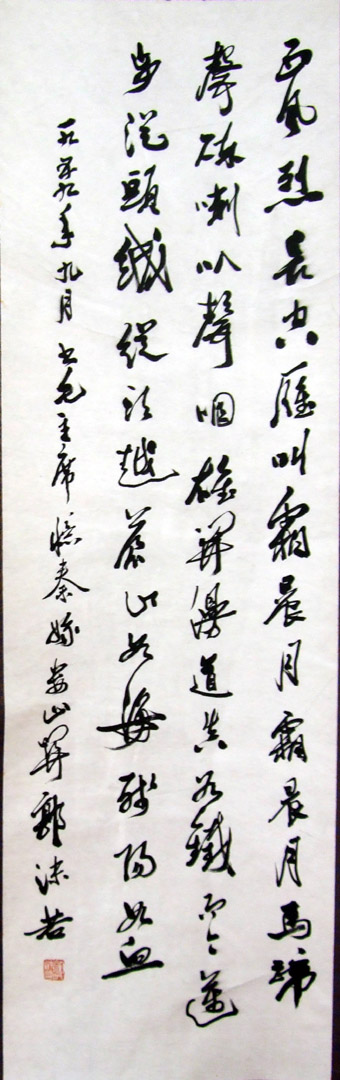 西風烈長空雁叫霜晨月霜晨月馬蹄
聲碎喇叭聲咽雄關漫道真如鐵而今邁
步從頭越從頭越蒼山如海殘陽如血
一九五九年九月書毛主席憶秦娥婁山關郭沫若